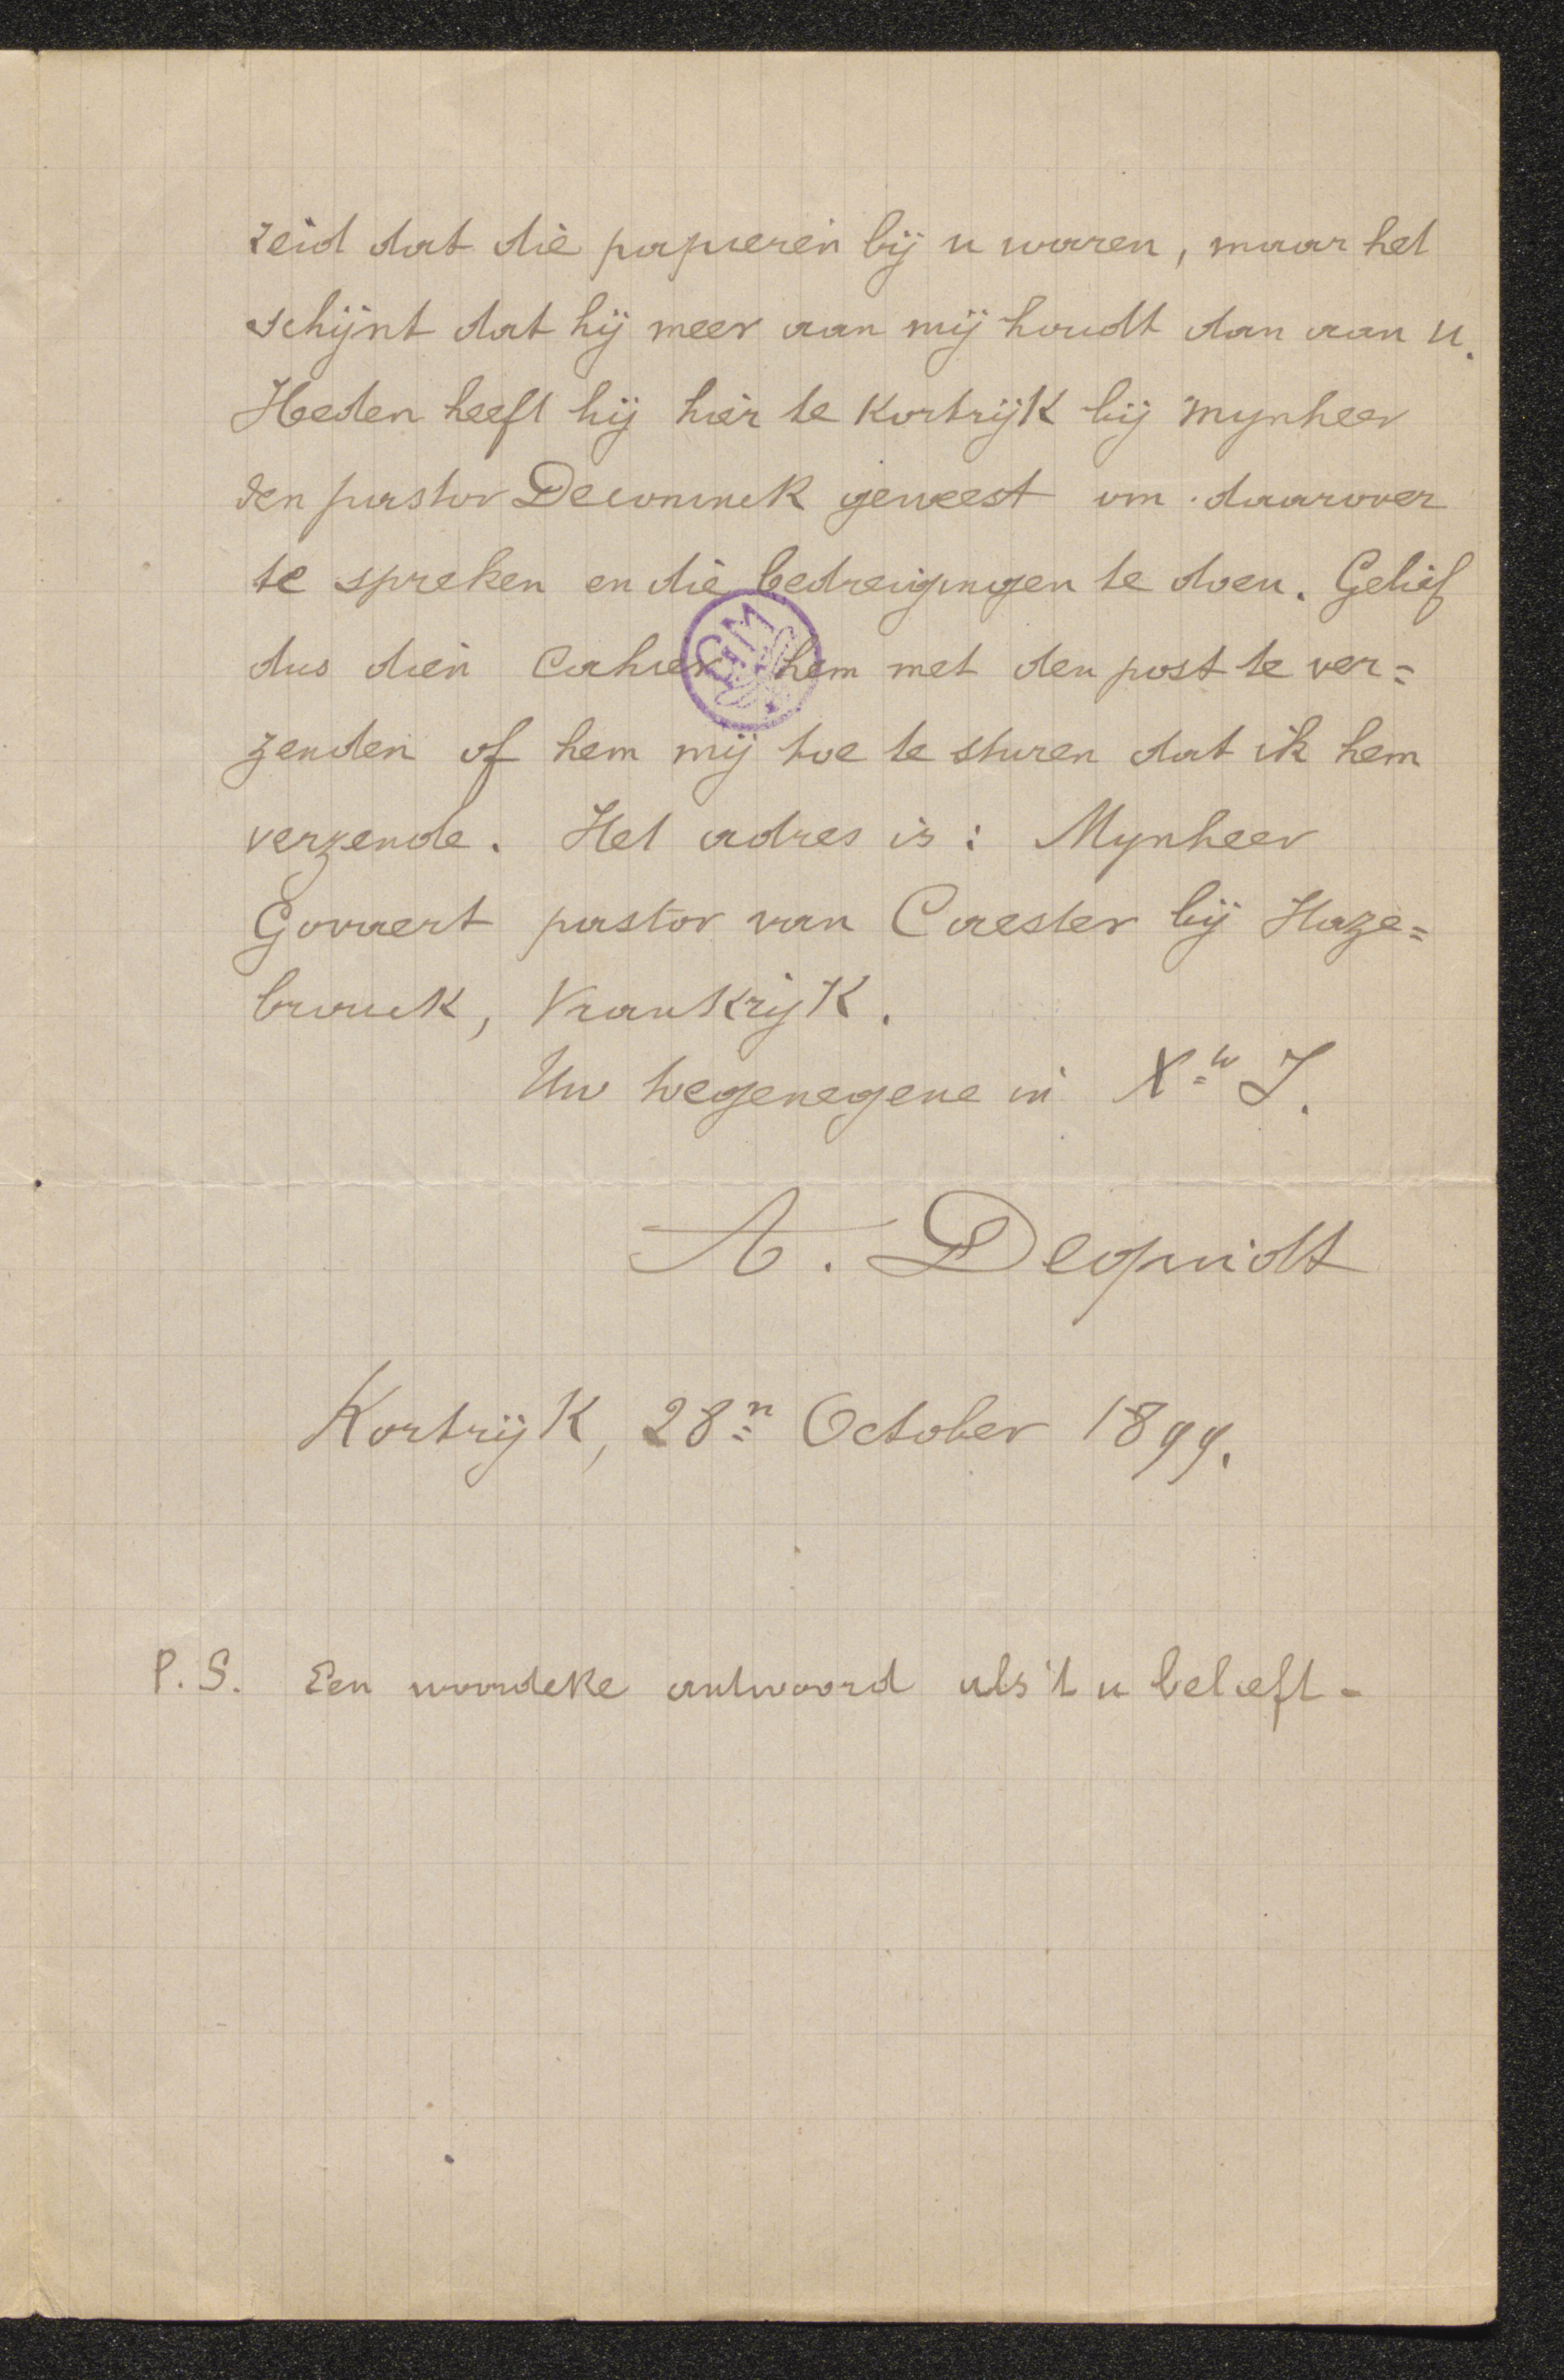 zeid dat die papieren bij u waren, maar het
schijnt dat hij meer aan mij houdt dan aan u.
Heden heeft hij hier te Kortrijk bij Mynheer
den pastor Deconinck geweest om daarover
te spreken en die bedreigingen te doen. Gelief
dus dien Cahier hem met den post te ver=
zenden of hem mij toe te sturen dat ik hem
verzende. Het adres is : Mynheer
Govaert pastor van Caester bij Haze=
brouck, Vrankrijk.
Uw toegenegene in X^to J.
A. Dequidt
Kortrijk, 28^n October 1899.
P.S. Een woordeke antwoord als 't u belieft -